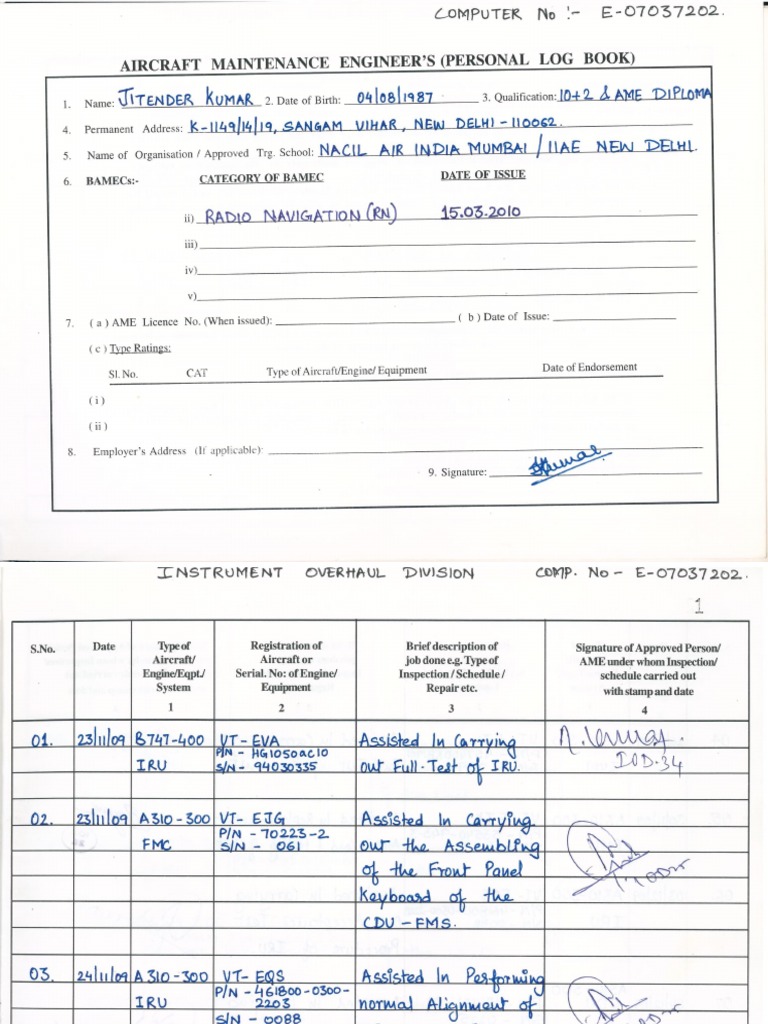 COMPUTER No :- E-07037202.
AIRCRAFT MAINTENANCE ENGINEER'S (PERSONAL LOG BOOK)
1. Name: JITENDER KUMAR 2. Date of Birth: 04/08/1987 3. Qualification: 10+2 & AME DIPLOMA
4. Permanent Address: K-1149/14/19, SANGAM VIHAR, NEW DELHI-110062.
5. Name of Organisation / Approved Trg. School: NACIL AIR INDIA MUMBAI / IIAE NEW DELHI.
6. BAMECs:- CATEGORY OF BAMEC DATE OF ISSUE
ii) RADIO NAVIGATION (RN) 15.03.2010
iii)
iv)
v)
7. ( a ) AME Licence No. (When issued): ( b ) Date of Issue:
( c ) Type Ratings:
Sl. No. CAT Type of Aircraft/Engine/ Equipment Date of Endorsement
( i )
( ii )
8. Employer's Address (If applicable):
9. Signature:
INSTRUMENT OVERHAUL DIVISION COMP. No - E-07037202.
1
S.No. Date Type of Aircraft/ Engine/Eqpt./ System 1 Registration of Aircraft or Serial. No: of Engine/ Equipment 2 Brief description of job done e.g. Type of Inspection / Schedule / Repair etc. 3 Signature of Approved Person/ AME under whom Inspection/ schedule carried out with stamp and date 4
01. 23/11/09 B747-400 VT-EVA Assisted In Carrying
P/N - HG1050AC10
IRU S/N - 94030335 out Full-Test of IRU. IOD-34
02. 23/11/09 A310-300 VT- EJG Assisted In Carrying
FMC P/N - 70223-2 out the Assembling
S/N - 061
of the Front Panel
Keyboard of the
CDU - FMS.
03. 24/11/09 A310-300 VT- EQS Assisted In Performing
IRU P/N - 461800-0300- normal Alignment of
2203
S/N - 0088